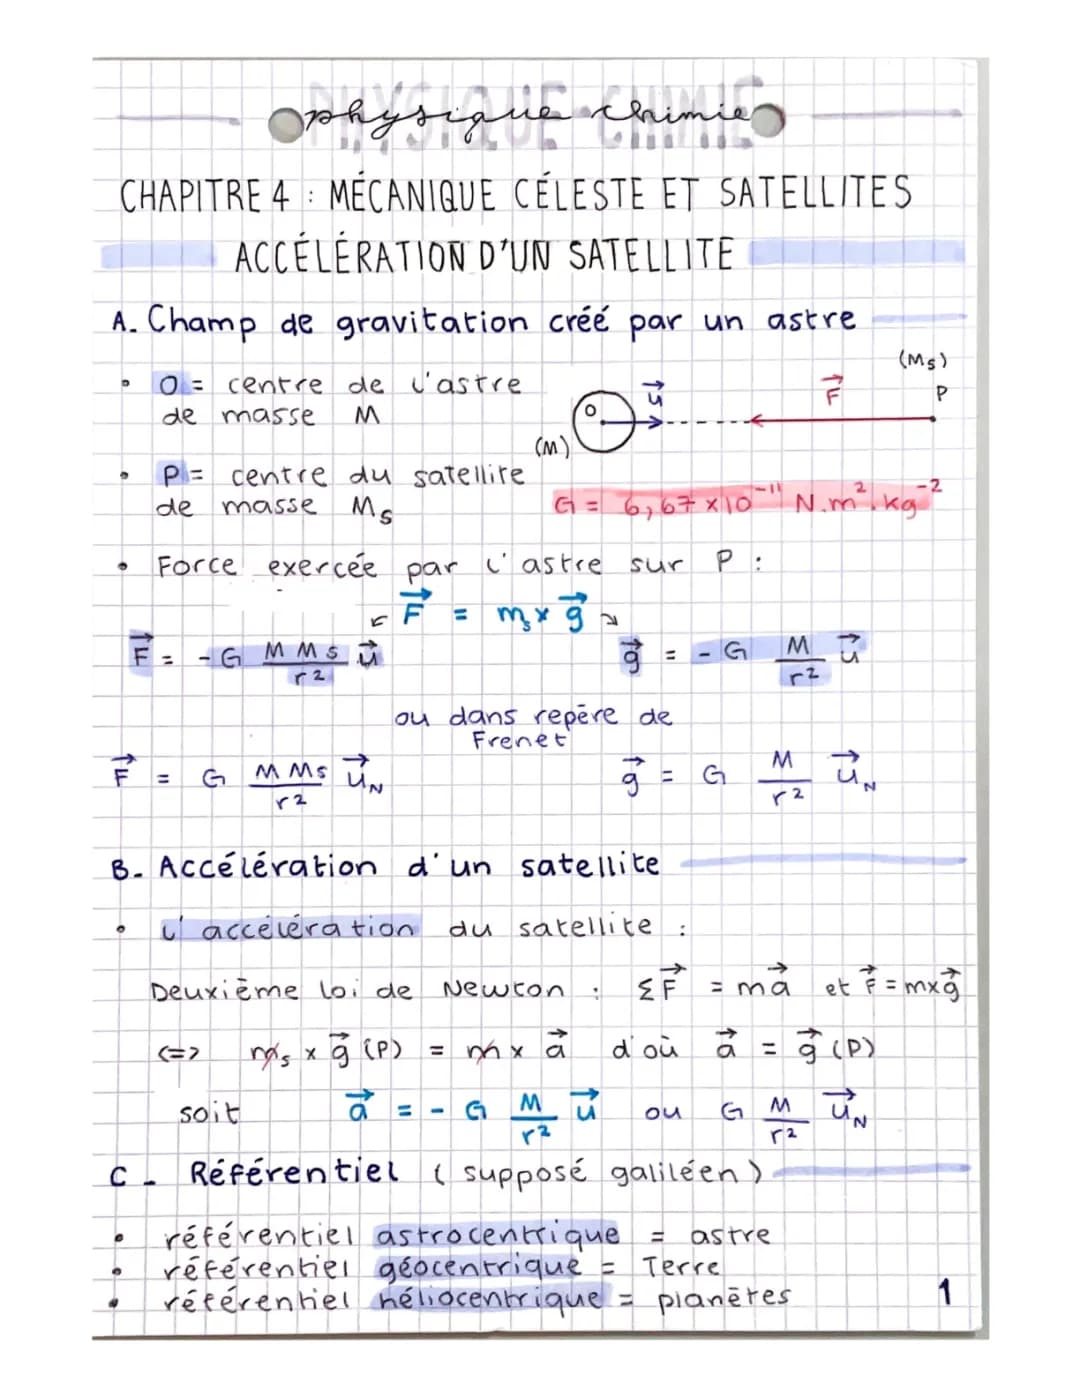 PHYSIQUE-CHIMIE
physique chimie
CHAPITRE 4 : MÉCANIQUE CÉLESTE ET SATELLITES
ACCÉLÉRATION D'UN SATELLITE
A. Champ de gravitation créé par un astre
• O = centre de l'astre
de masse M
(M) O u⃗ F⃗ P (Ms)
• P = centre du satellite
de masse Ms
G = 6,67 × 10⁻¹¹ N.m².kg⁻²
• Force exercée par l'astre sur P :
↙ F⃗ = ms × g⃗ ↘
F⃗ = - G M Ms / r² u⃗
g⃗ = - G M / r² u⃗
ou dans repère de
Frenet
F⃗ = G M Ms / r² u⃗N
g⃗ = G M / r² u⃗N
B. Accélération d'un satellite
• l'accélération du satellite :
Deuxième loi de Newton : ΣF⃗ = ma⃗ et F⃗ = m×g⃗
<=> ms × g⃗ (P) = m × a⃗ d'où a⃗ = g⃗ (P)
soit a⃗ = - G M / r² u⃗ ou G M / r² u⃗N
C - Référentiel (supposé galiléen)
• référentiel astrocentrique = astre
• référentiel géocentrique = Terre
• référentiel héliocentrique = planètes
1